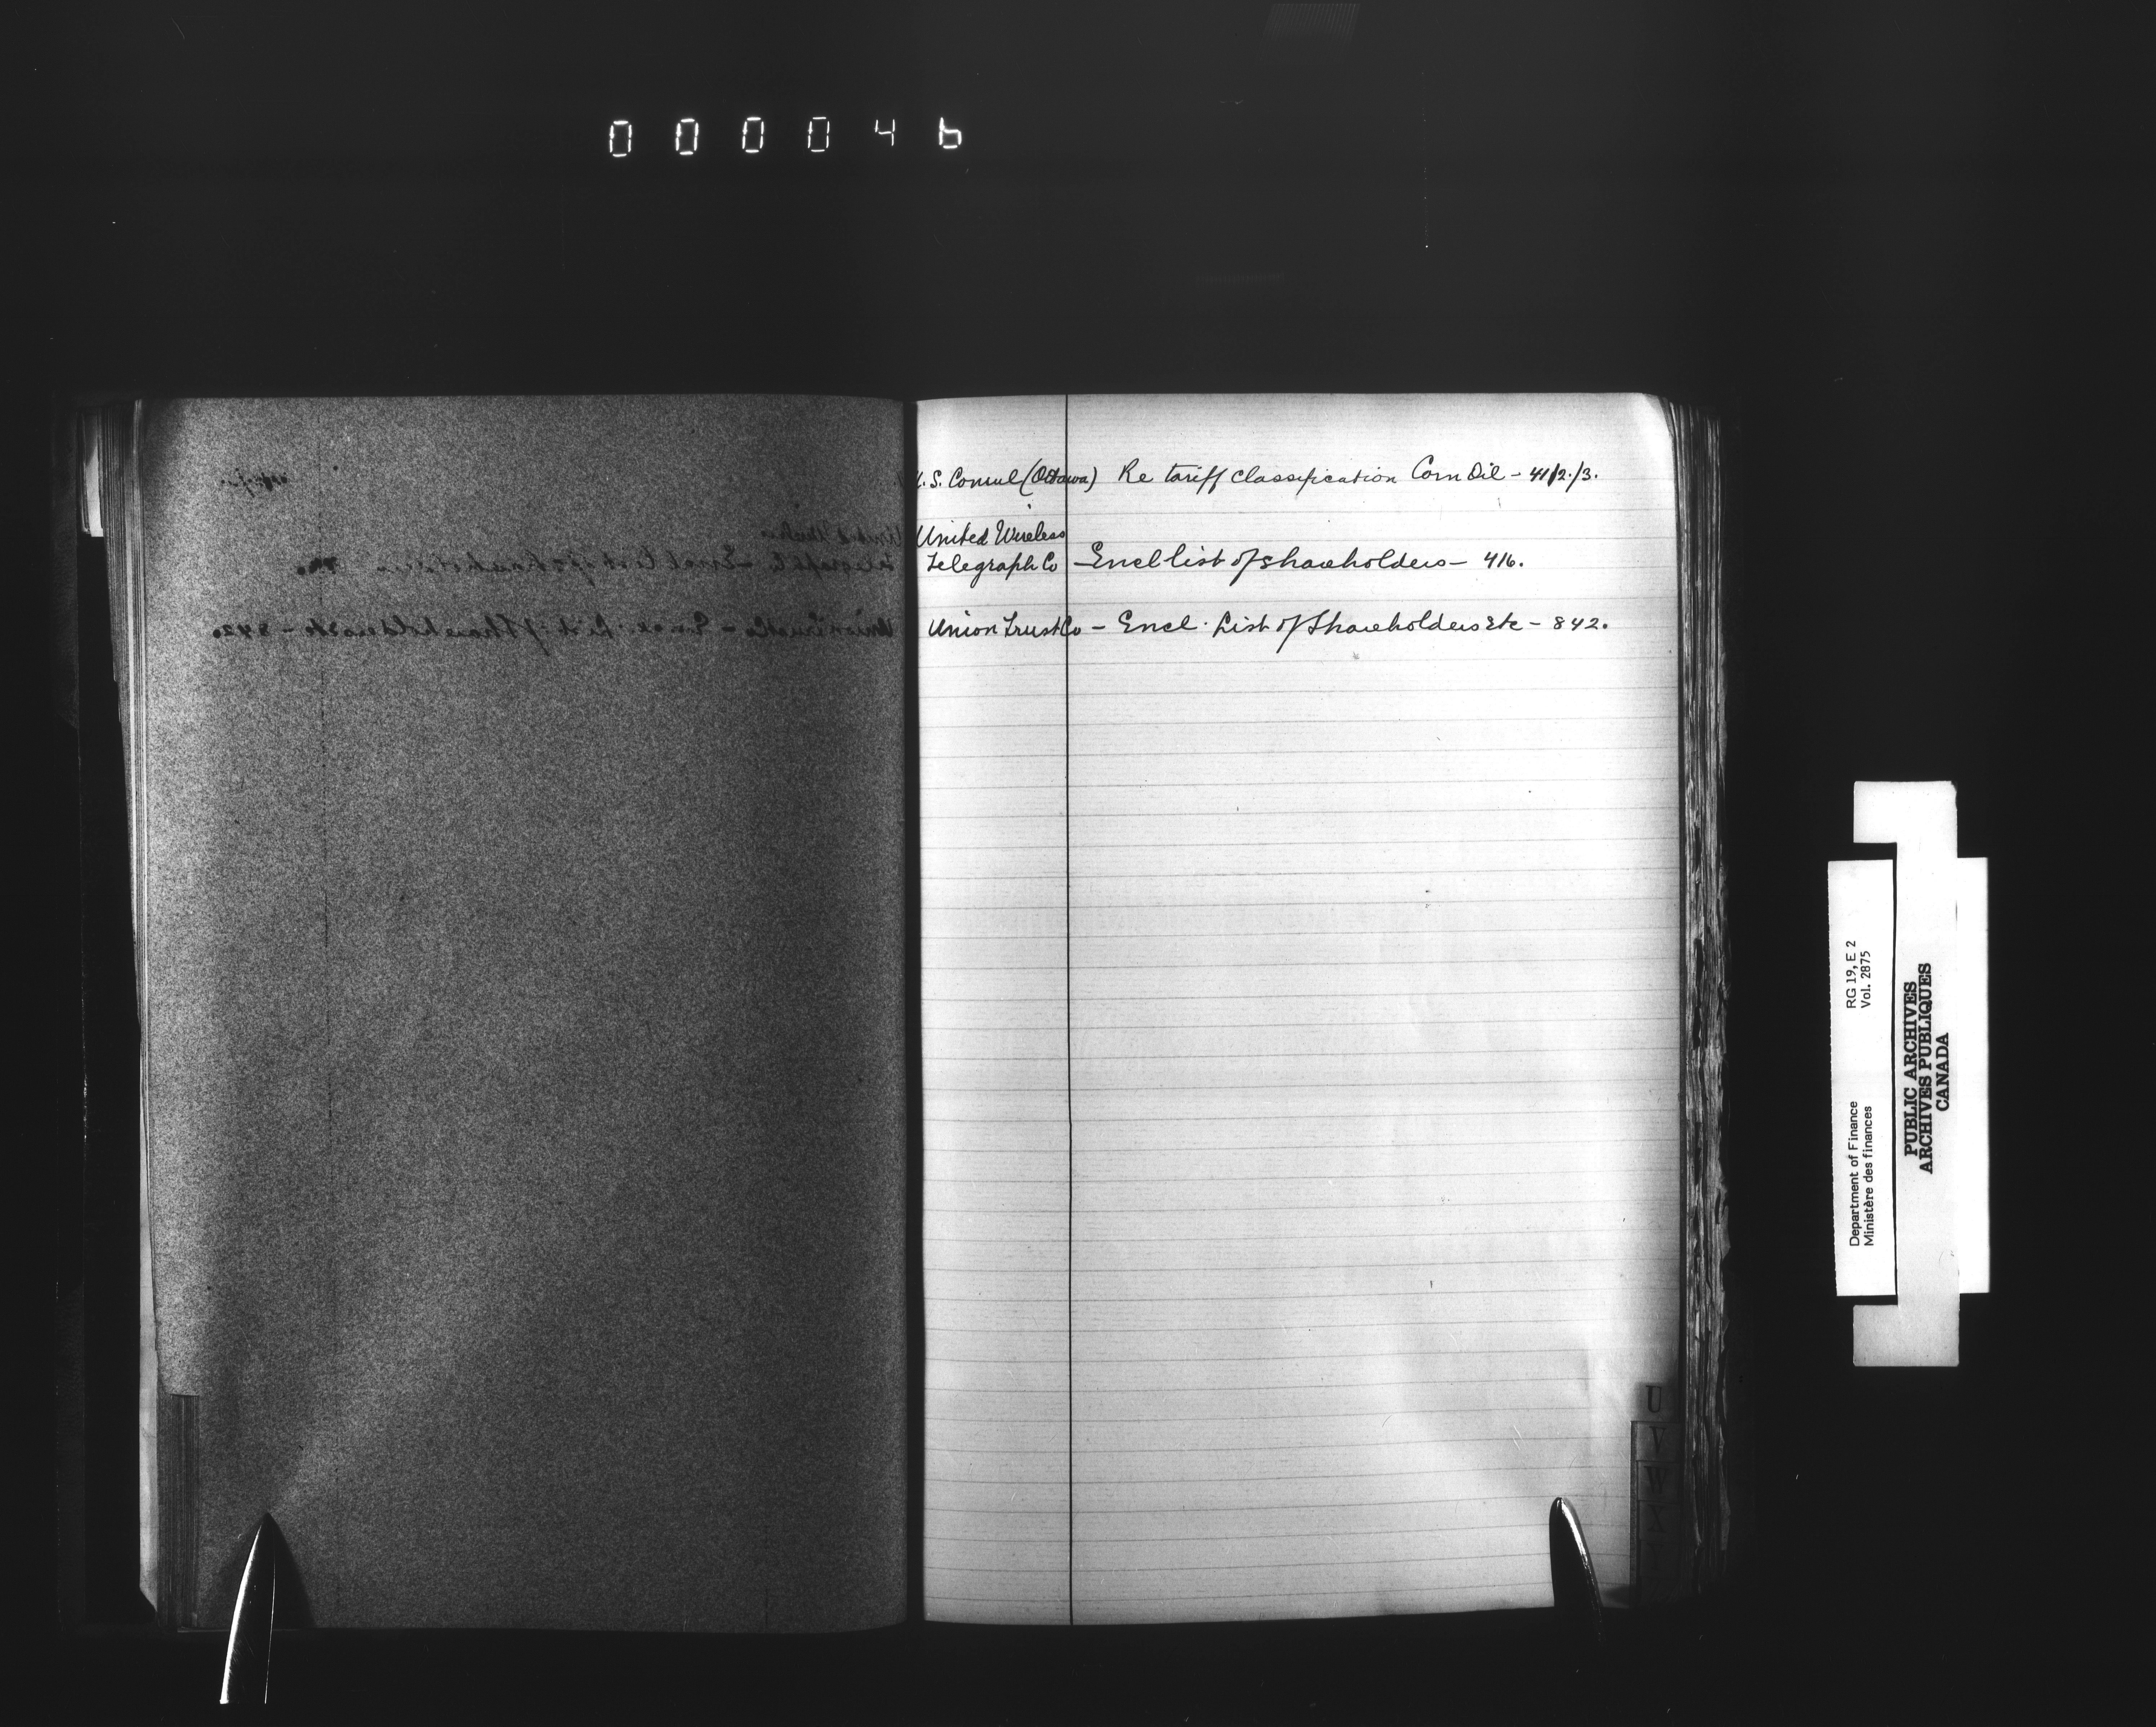 000046
U.S. Consul (Ottawa) Re tariff classification Corn Oil - 411/2./3.
United Wireless
Telegraph Co - Encl list of shareholders - 416.
Union Trust Co - Encl. List of Shareholders etc - 842.
U
V
W
X
Department of Finance RG 19, E 2
Ministère des finances Vol. 2875
PUBLIC ARCHIVES
ARCHIVES PUBLIQUES
CANADA